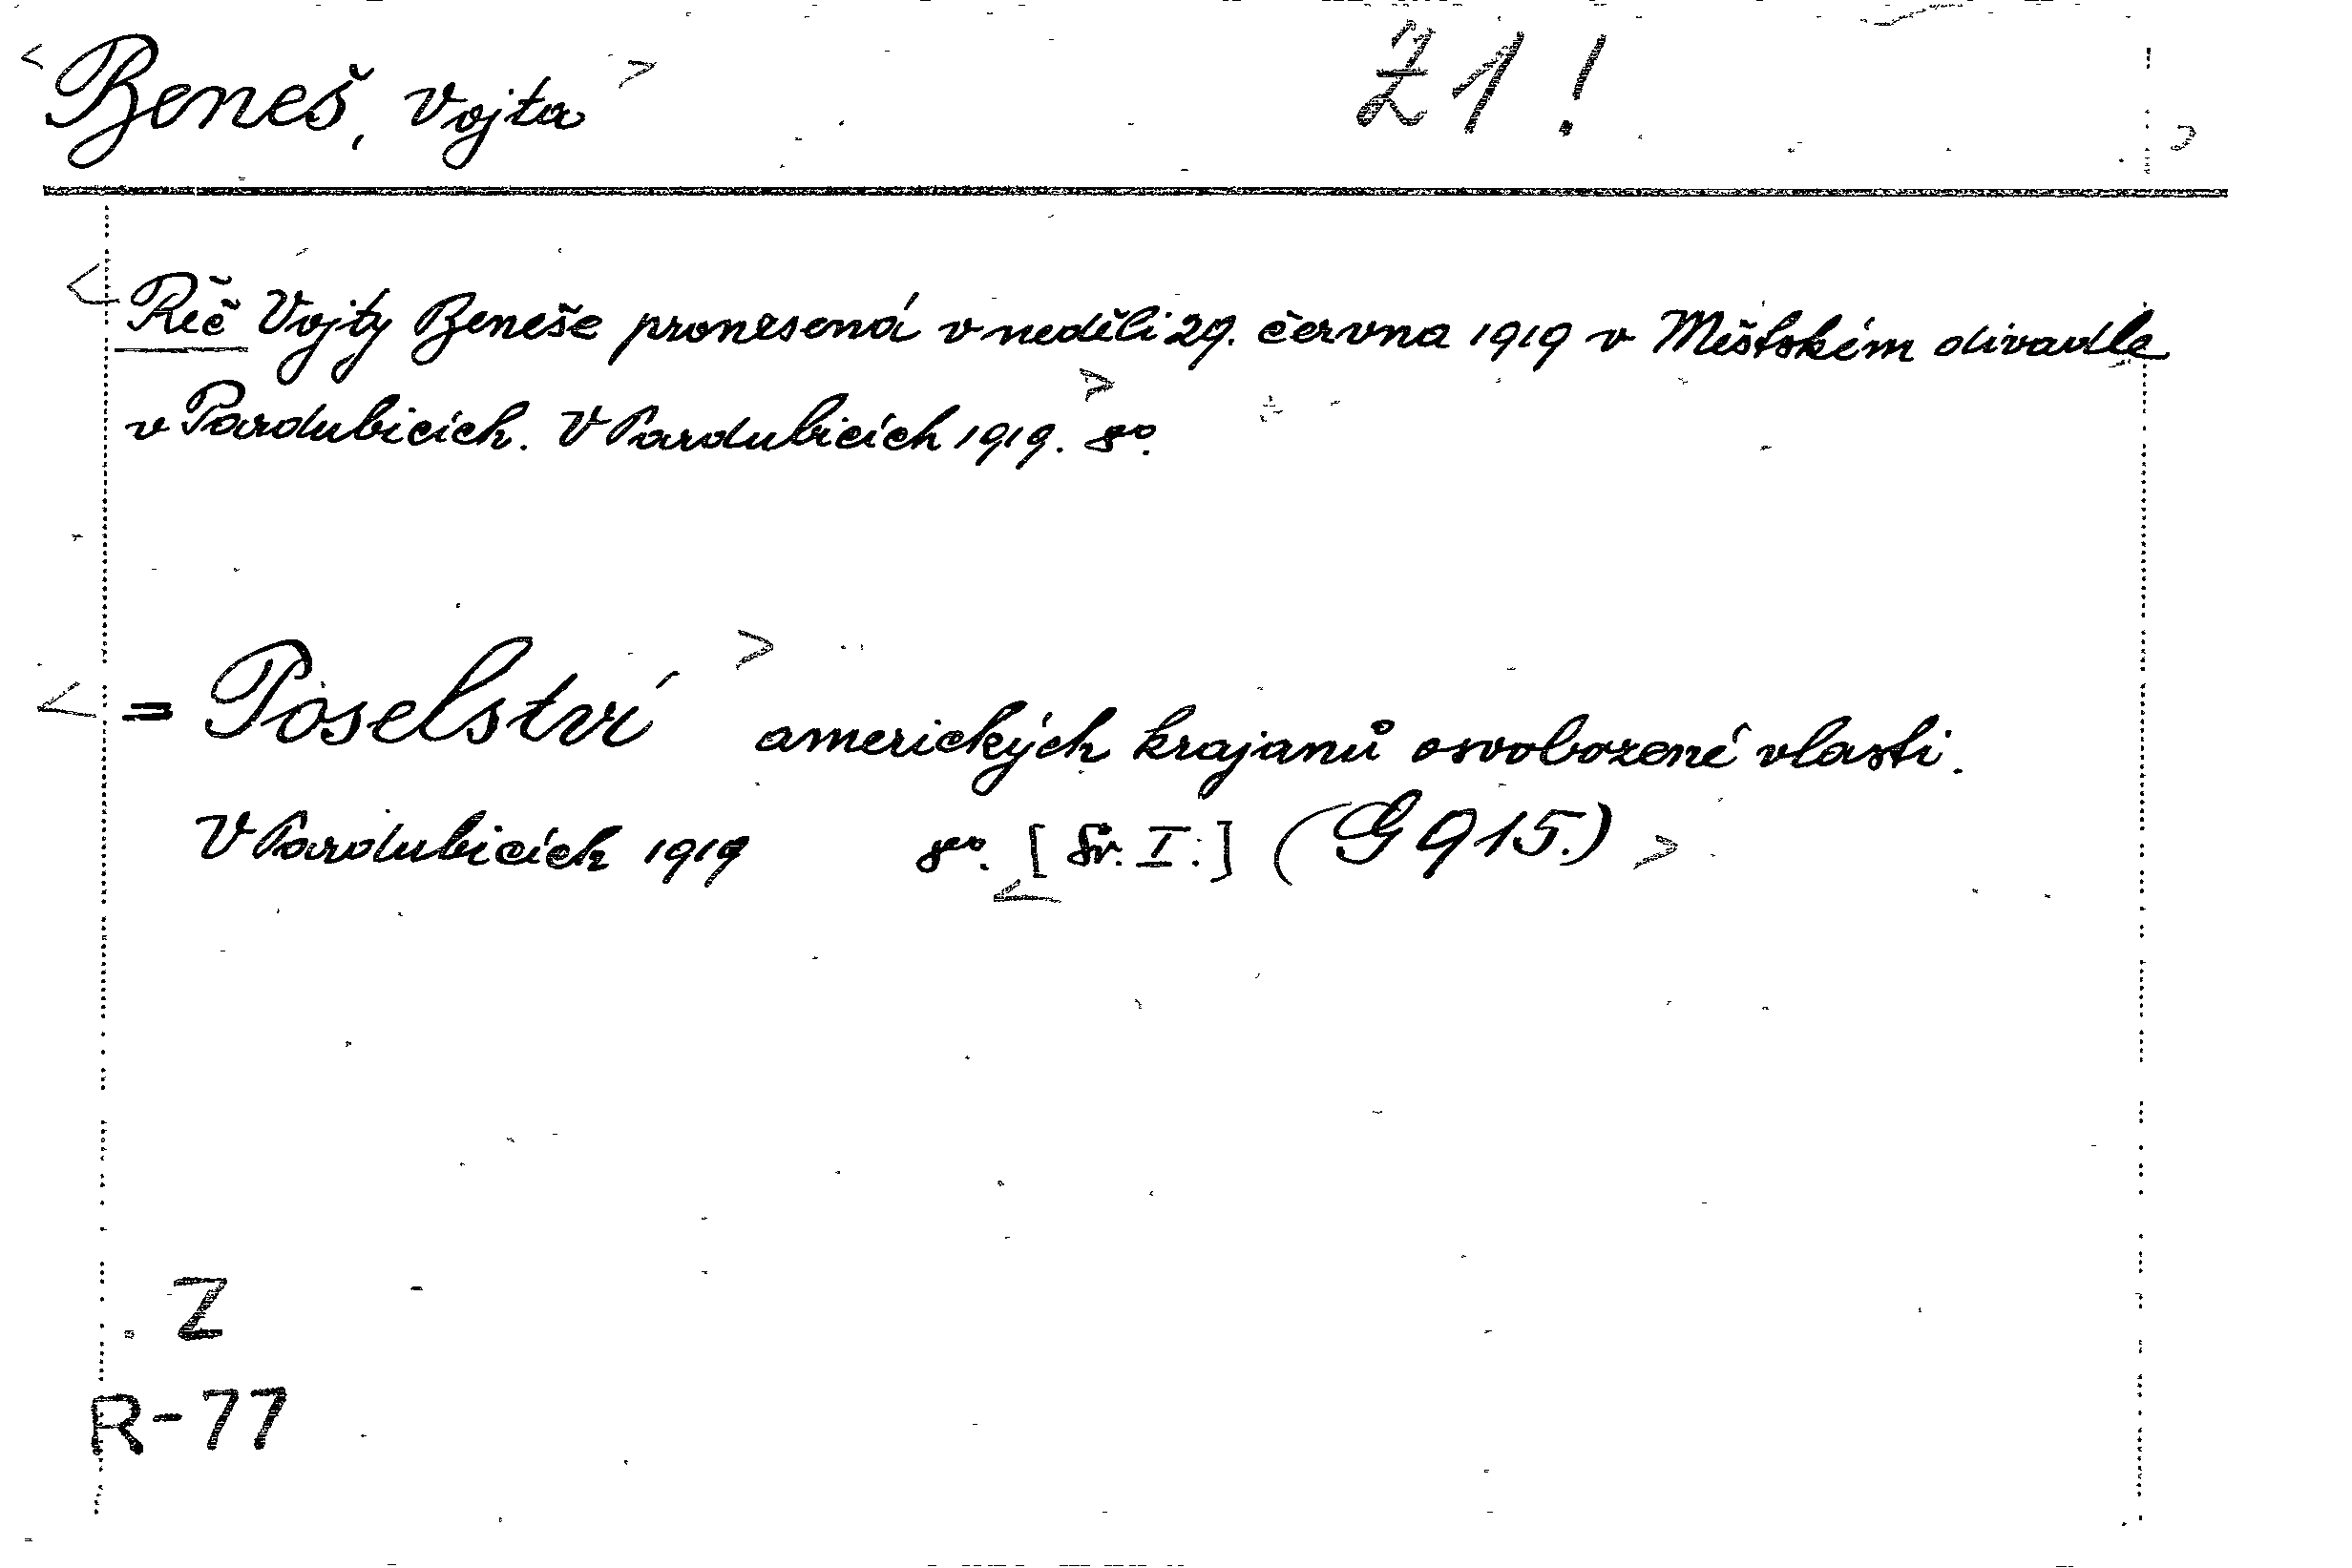 < Beneš, Vojta > Z1!
< Řeč Vojty Beneše pronesená v neděli 29. června 1919 v Městském divadle
v Pardubicích. V Pardubicích 1919. > 8°.
< = Poselství > amerických krajanů osvobozené vlasti.
V Pardubicích 1919 8°. < [Sv. I.] (G 915.) >
Z
R-77